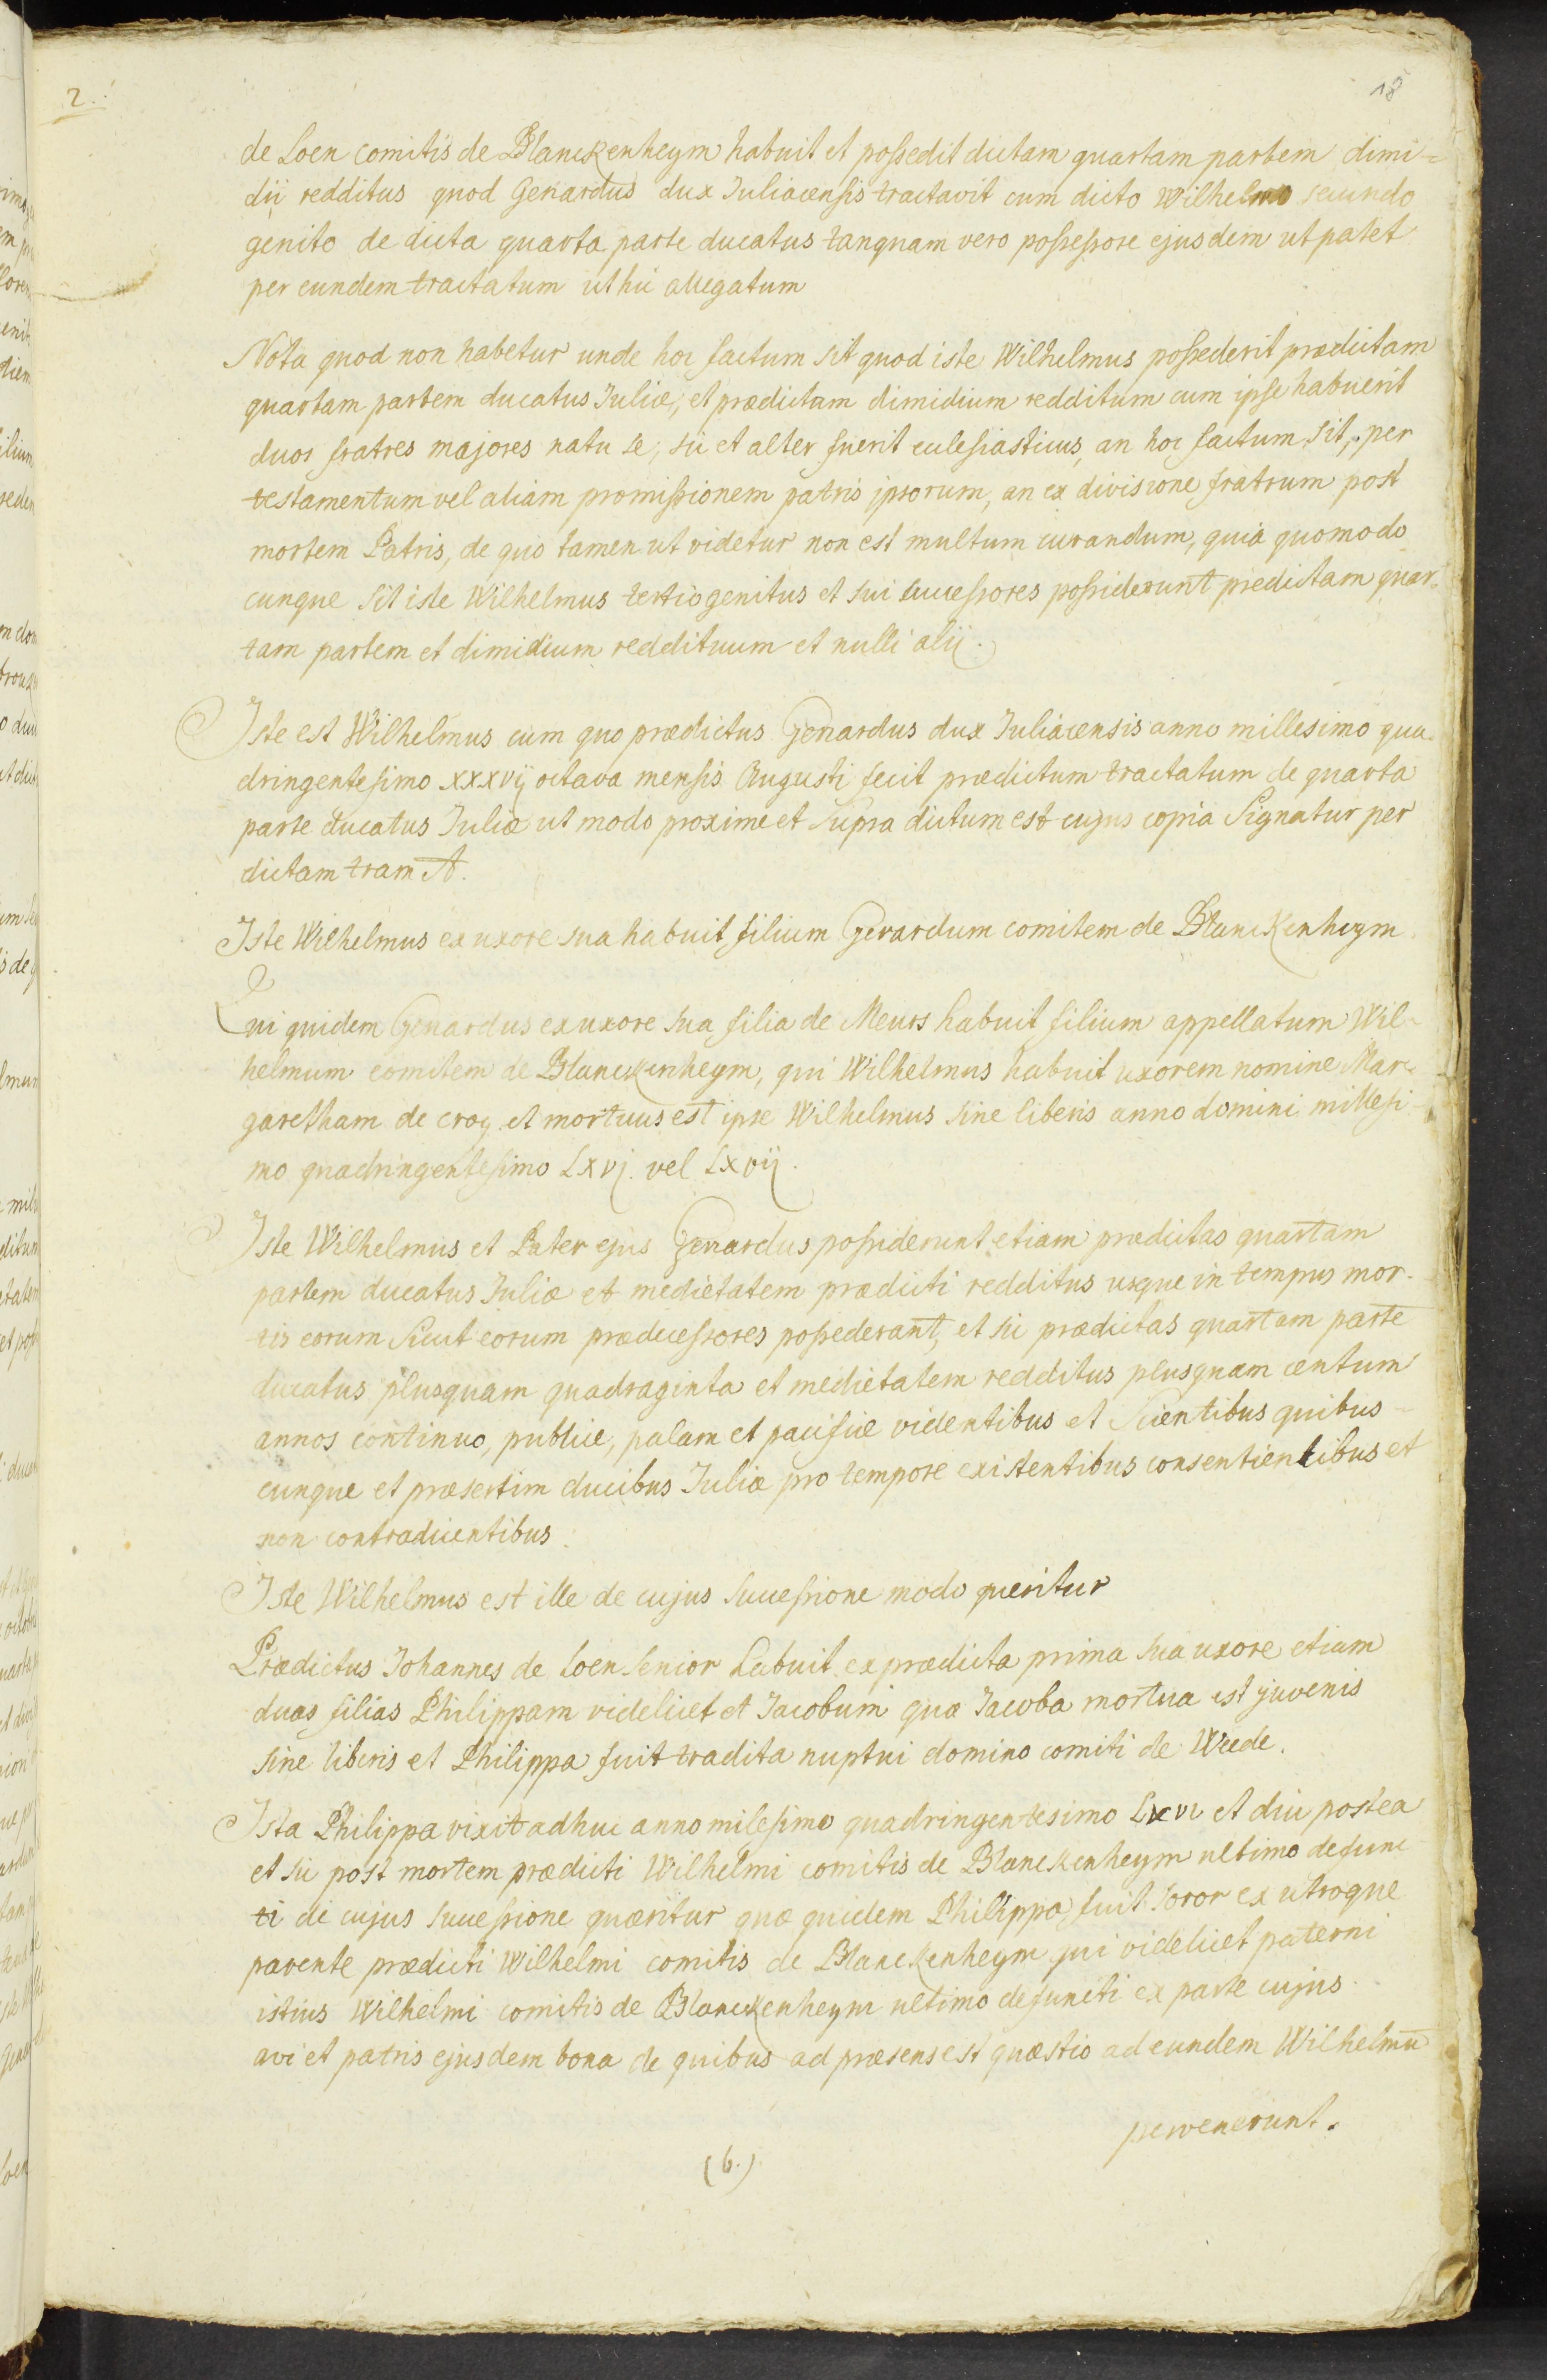 2.
18
de Loen comitis de Blanckenheym habuit et possedit dictam quartam partem dimi=
dii redditus quod Gerardus dux Juliacensis tractavit cum dicto Wilhelmo secundo
genito de dicta quarta parte ducatus tanquam vero possessore ejusdem ut patet
per eundem tractatum ut hic allegatum
Nota quod non habetur unde hoc factum sit quod iste Wilhelmus possederit prædictam
quartam partem ducatus Juliæ, et prædictum dimidium redditum cum ipse habuerit
duos fratres majores natu se, sic et alter fuerit eclesiasticus, an hoc factum sit, per
testamentum vel aliam promissionem patris ipsorum, an ex divisione fratrum post
mortem Patris, de quo tamen ut videtur non est multum curandum, quia quomodo
cunque sit iste Wilhelmus tertiogenitus et sui successores possiderunt predictam quar-
tam partem et dimidium reddituum et nulli alii.
Iste est Wilhelmus cum quo prædictus Gerardus dux Juliacensis anno millesimo qua-
dringentesimo xxxvij octava mensis Augusti fecit prædictum tractatum de quarta
parte ducatus Juliæ ut modo proxime et supra dictum est cujus copia signatur per
dictam tram A.
Iste Wilhelmus ex uxore sua habuit filium Gerardum comitem de Blanckenheym.
Qui quidem Gerardus ex uxore sua filia de Meurs habuit filium appellatum Wil-
helmum comitem de Blanckenheym, qui Wilhelmus habuit uxorem nomine Mar-
garetham de croy et mortuus est ipse Wilhelmus sine liberis anno domini millesi-
mo quadringentesimo Lxvj. vel Lxvij.
Iste Wilhelmus et Pater ejus Gerardus possiderunt etiam prædictas quartam
partem ducatus Juliæ et medietatem prædicti redditus usque in tempus mor-
tis eorum sicut eorum prædecessores possederant, et sic prædictas quartam parte
ducatus plusquam quadraginta et medietatem redditus plusquam centum
annos continuo, publice, palam et pacifice videntibus et scientibus quibus-
cunque et præsertim ducibus Juliæ pro tempore existentibus consentientibus et
non contradicentibus.
Iste Wilhelmus est ille de cujus successione modo queritur
Prædictus Johannes de Loen senior habuit ex prædicta prima sua uxore etiam
duas filias Philippam videlicet et Jacobum quæ Jacoba mortua est juvenis
sine liberis et Philippa fuit tradita nuptui domino comiti de Weede.
Ista Philippa vixit adhuc anno milesimo quadringentesimo Lxvi et diu postea
et sic post mortem prædicti Wilhelmi comitis de Blanckenheym ultimo defunc
ti de cujus successione quæritur quæ quidem Philippa fuit soror ex utroque
parente prædicti Wilhelmi comitis de Blanckenheym qui videlicet paterni
istius Wilhelmi comitis de Blanckenheym ultimo defuncti ex parte cujus
avi et patris ejusdem bona de quibus ad præsens est quæstio ad eundem Wilhelmū
pervenerunt.
(6.)